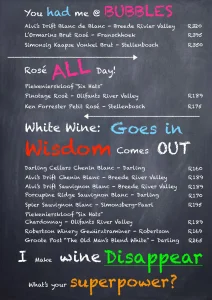 You had me @ BUBBLES
Alvi's Drift Blanc de Blanc - Breede River Valley R220
L'Ormarins Brut Rosé - Franschhoek R395
Simonsig Kaapse Vonkel Brut - Stellenbosch R350
Rosé ALL Day!
Piekenierskloof "Six Hats"
Pinotage Rosé - Olifants River Valley R189
Ken Forrester Petit Rosé - Stellenbosch R175
White Wine: Goes in
Wisdom Comes OUT
Darling Cellars Chenin Blanc - Darling R160
Alvi's Drift Chenin Blanc - Breede River Valley R189
Alvi's Drift Sauvignon Blanc - Breede River Valley R189
Porcupine Ridge Sauvignon Blanc - Darling R170
Spier Sauvignon Blanc - Simonsberg-Paarl R195
Piekenierskloof "Six Hats"
Chardonnay - Olifants River Valley R189
Robertson Winery Gewürztraminer - Robertson R169
Groote Post "The Old Man's Blend White" - Darling R265
I Make wine Disappear
What's your superpower?